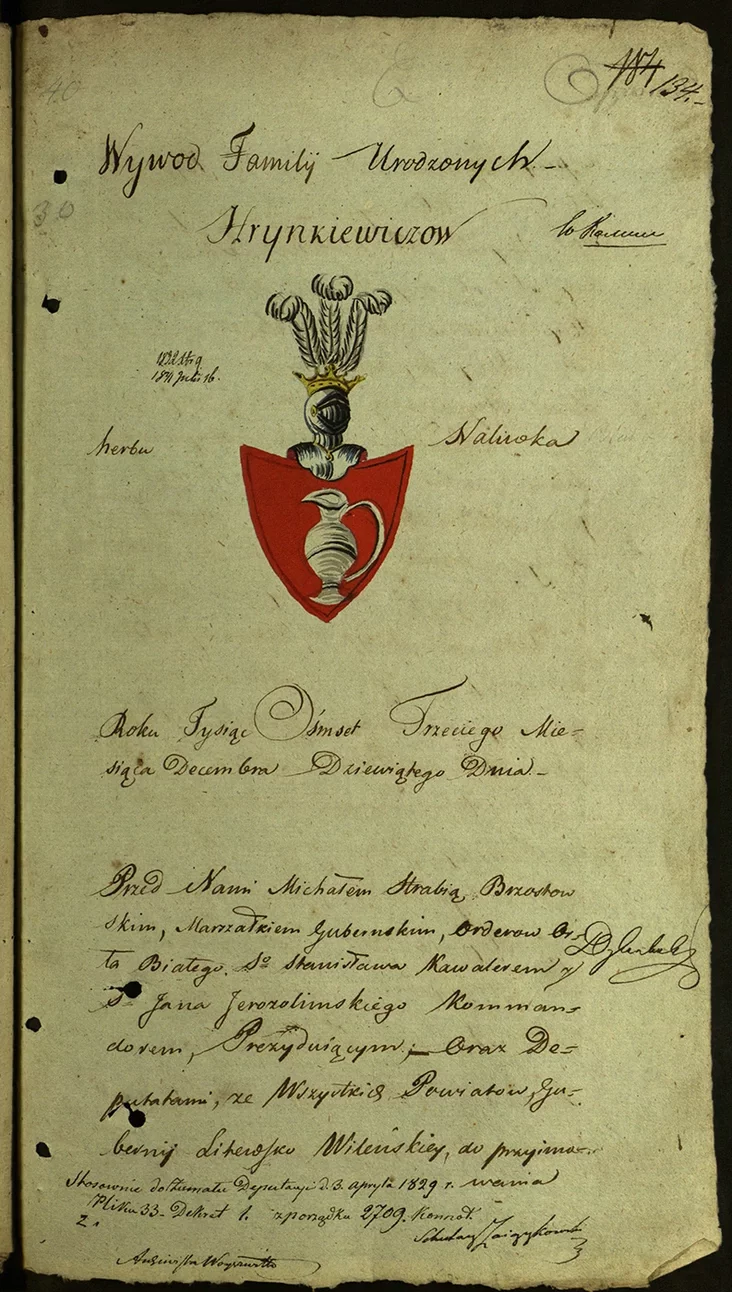 40
134.
Wywod Familij Urodzonych
30
Hrynkiewiczow
herbu Naliwka
Roku Tysiąc Ośmset Trzeciego Mie=
siąca Decembra Dziewiątego Dnia
Przed Nami Michałem Hrabią Brzostow
skim, Marszałkiem Gubernskim, Orderow Or=
ła Białego So Stanisława Kawalerem y
So Jana Jerozolimskiego Komman=
dorem, Prezyduiącym; Oraz De=
putatami, ze Wszystkich Powiatow, Gu=
bernij Litewsko Wileńskiey, do przyimo=
wania
Stosownie do Deputacyi d. 3. apryla 1829 r.
Pliku 33. Dekret 1. z porządku 2709.